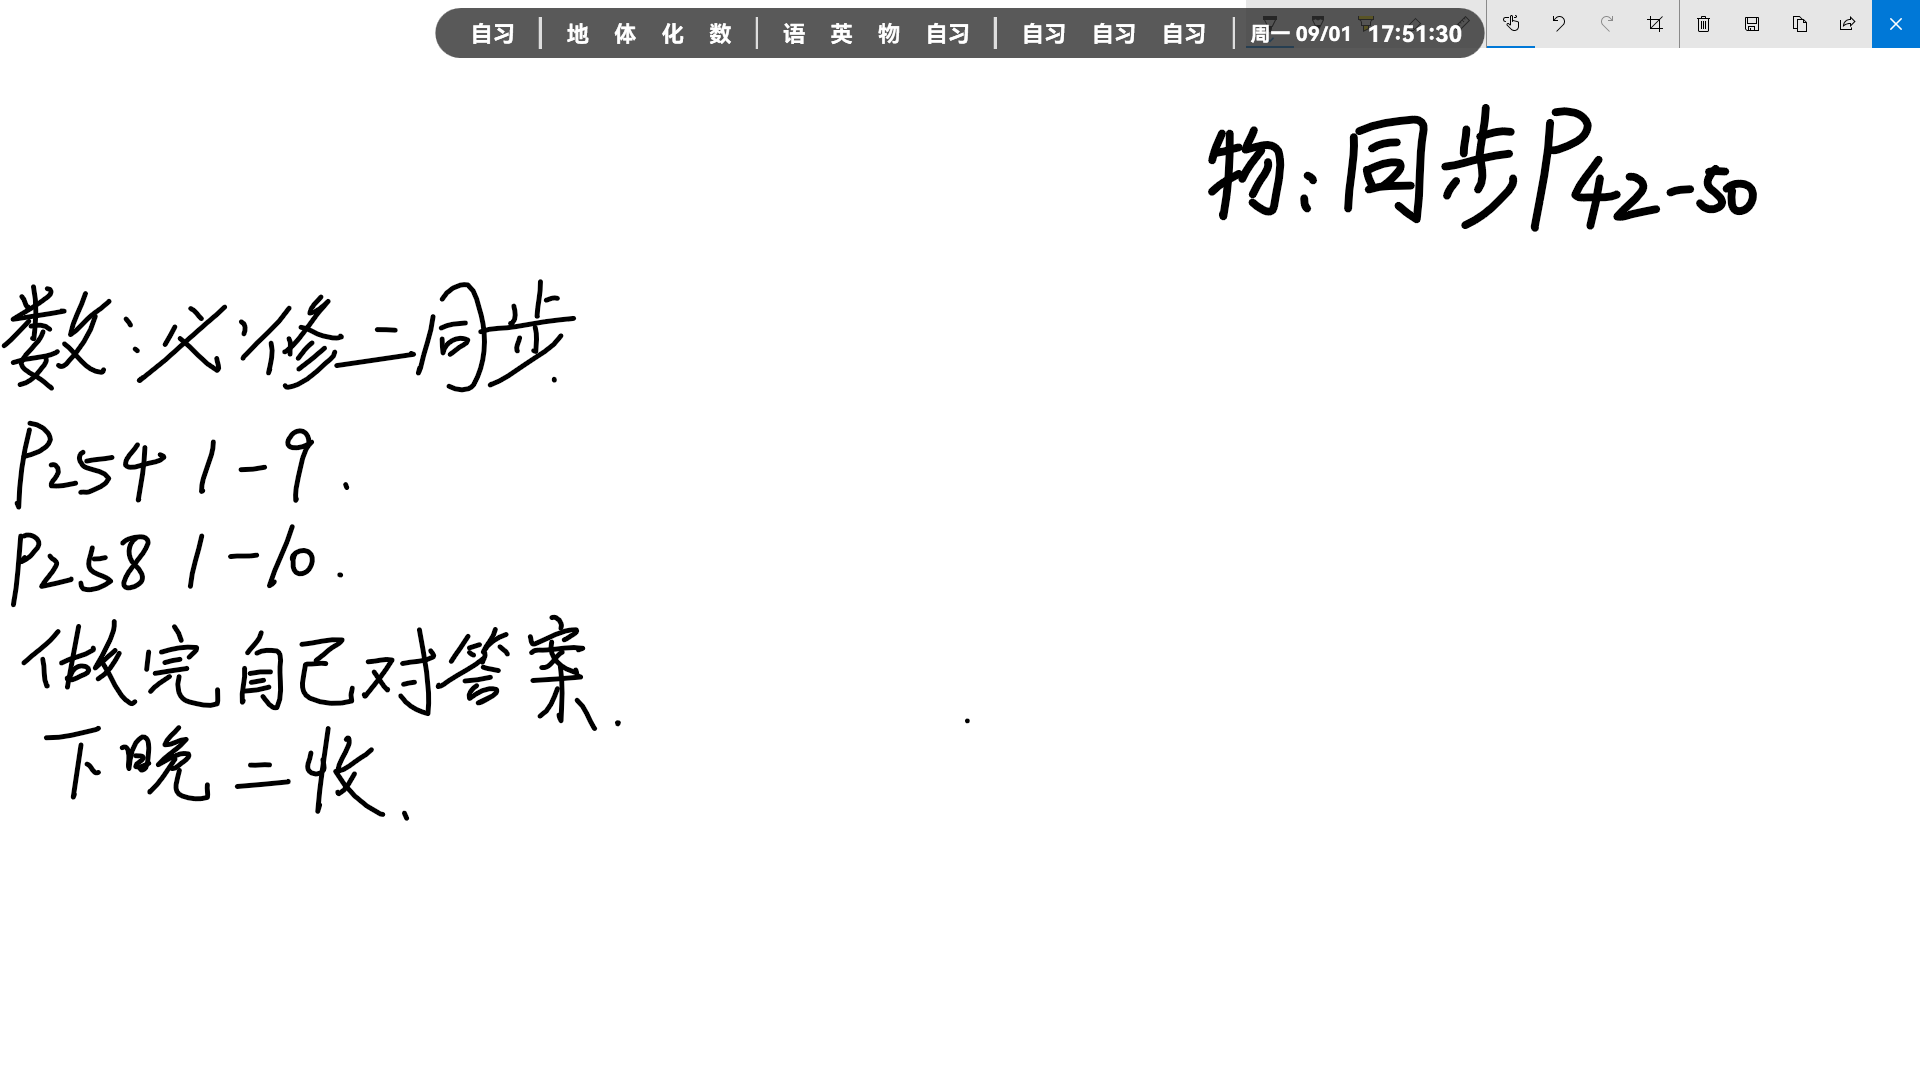 自习 | 地 体 化 数 | 语 英 物 自习 | 自习 自习 自习 | 周一 09/01 17:51:30
物:同步P42-50
数:必修二同步.
P254 1-9.
P258 1-10.
做完自己对答案.
下晚二收.